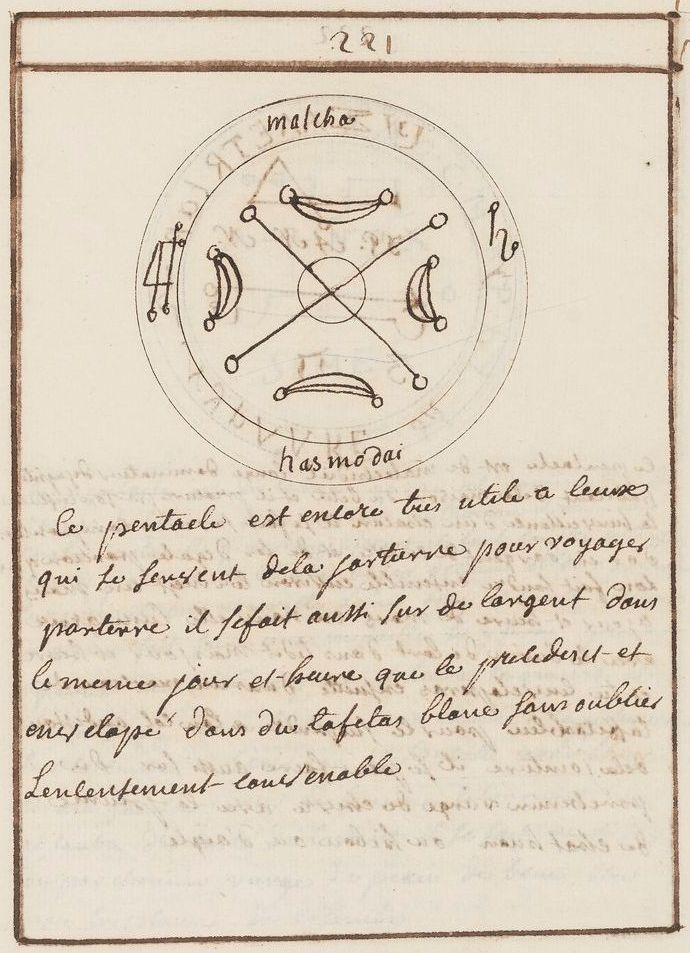 221
malcha
hasmodai
le pentacle est encore tres utile a ceux
qui se servent dela jartierre pour voyager
parterre il sefait aussi sur de largent dans
le meme jour et heure que le precedent et
envelopé dans du tafetas blanc sans oublier
Lencensement convenable